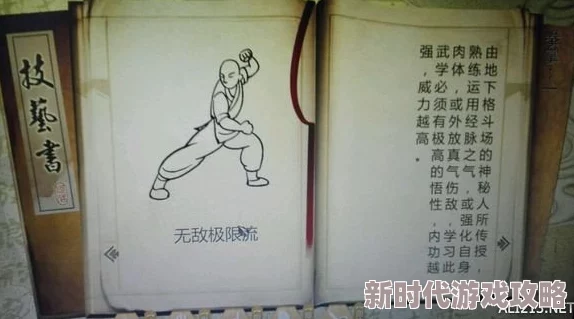 技藝書
无敌极限流
由地下格斗场的神秘人所传授，
熟练运用经脉之气，或强化自身
肉体，或外放真气伤敌。学习此
武学必须有极高的悟性，内功越
强，威力越高。
新时代游戏攻略